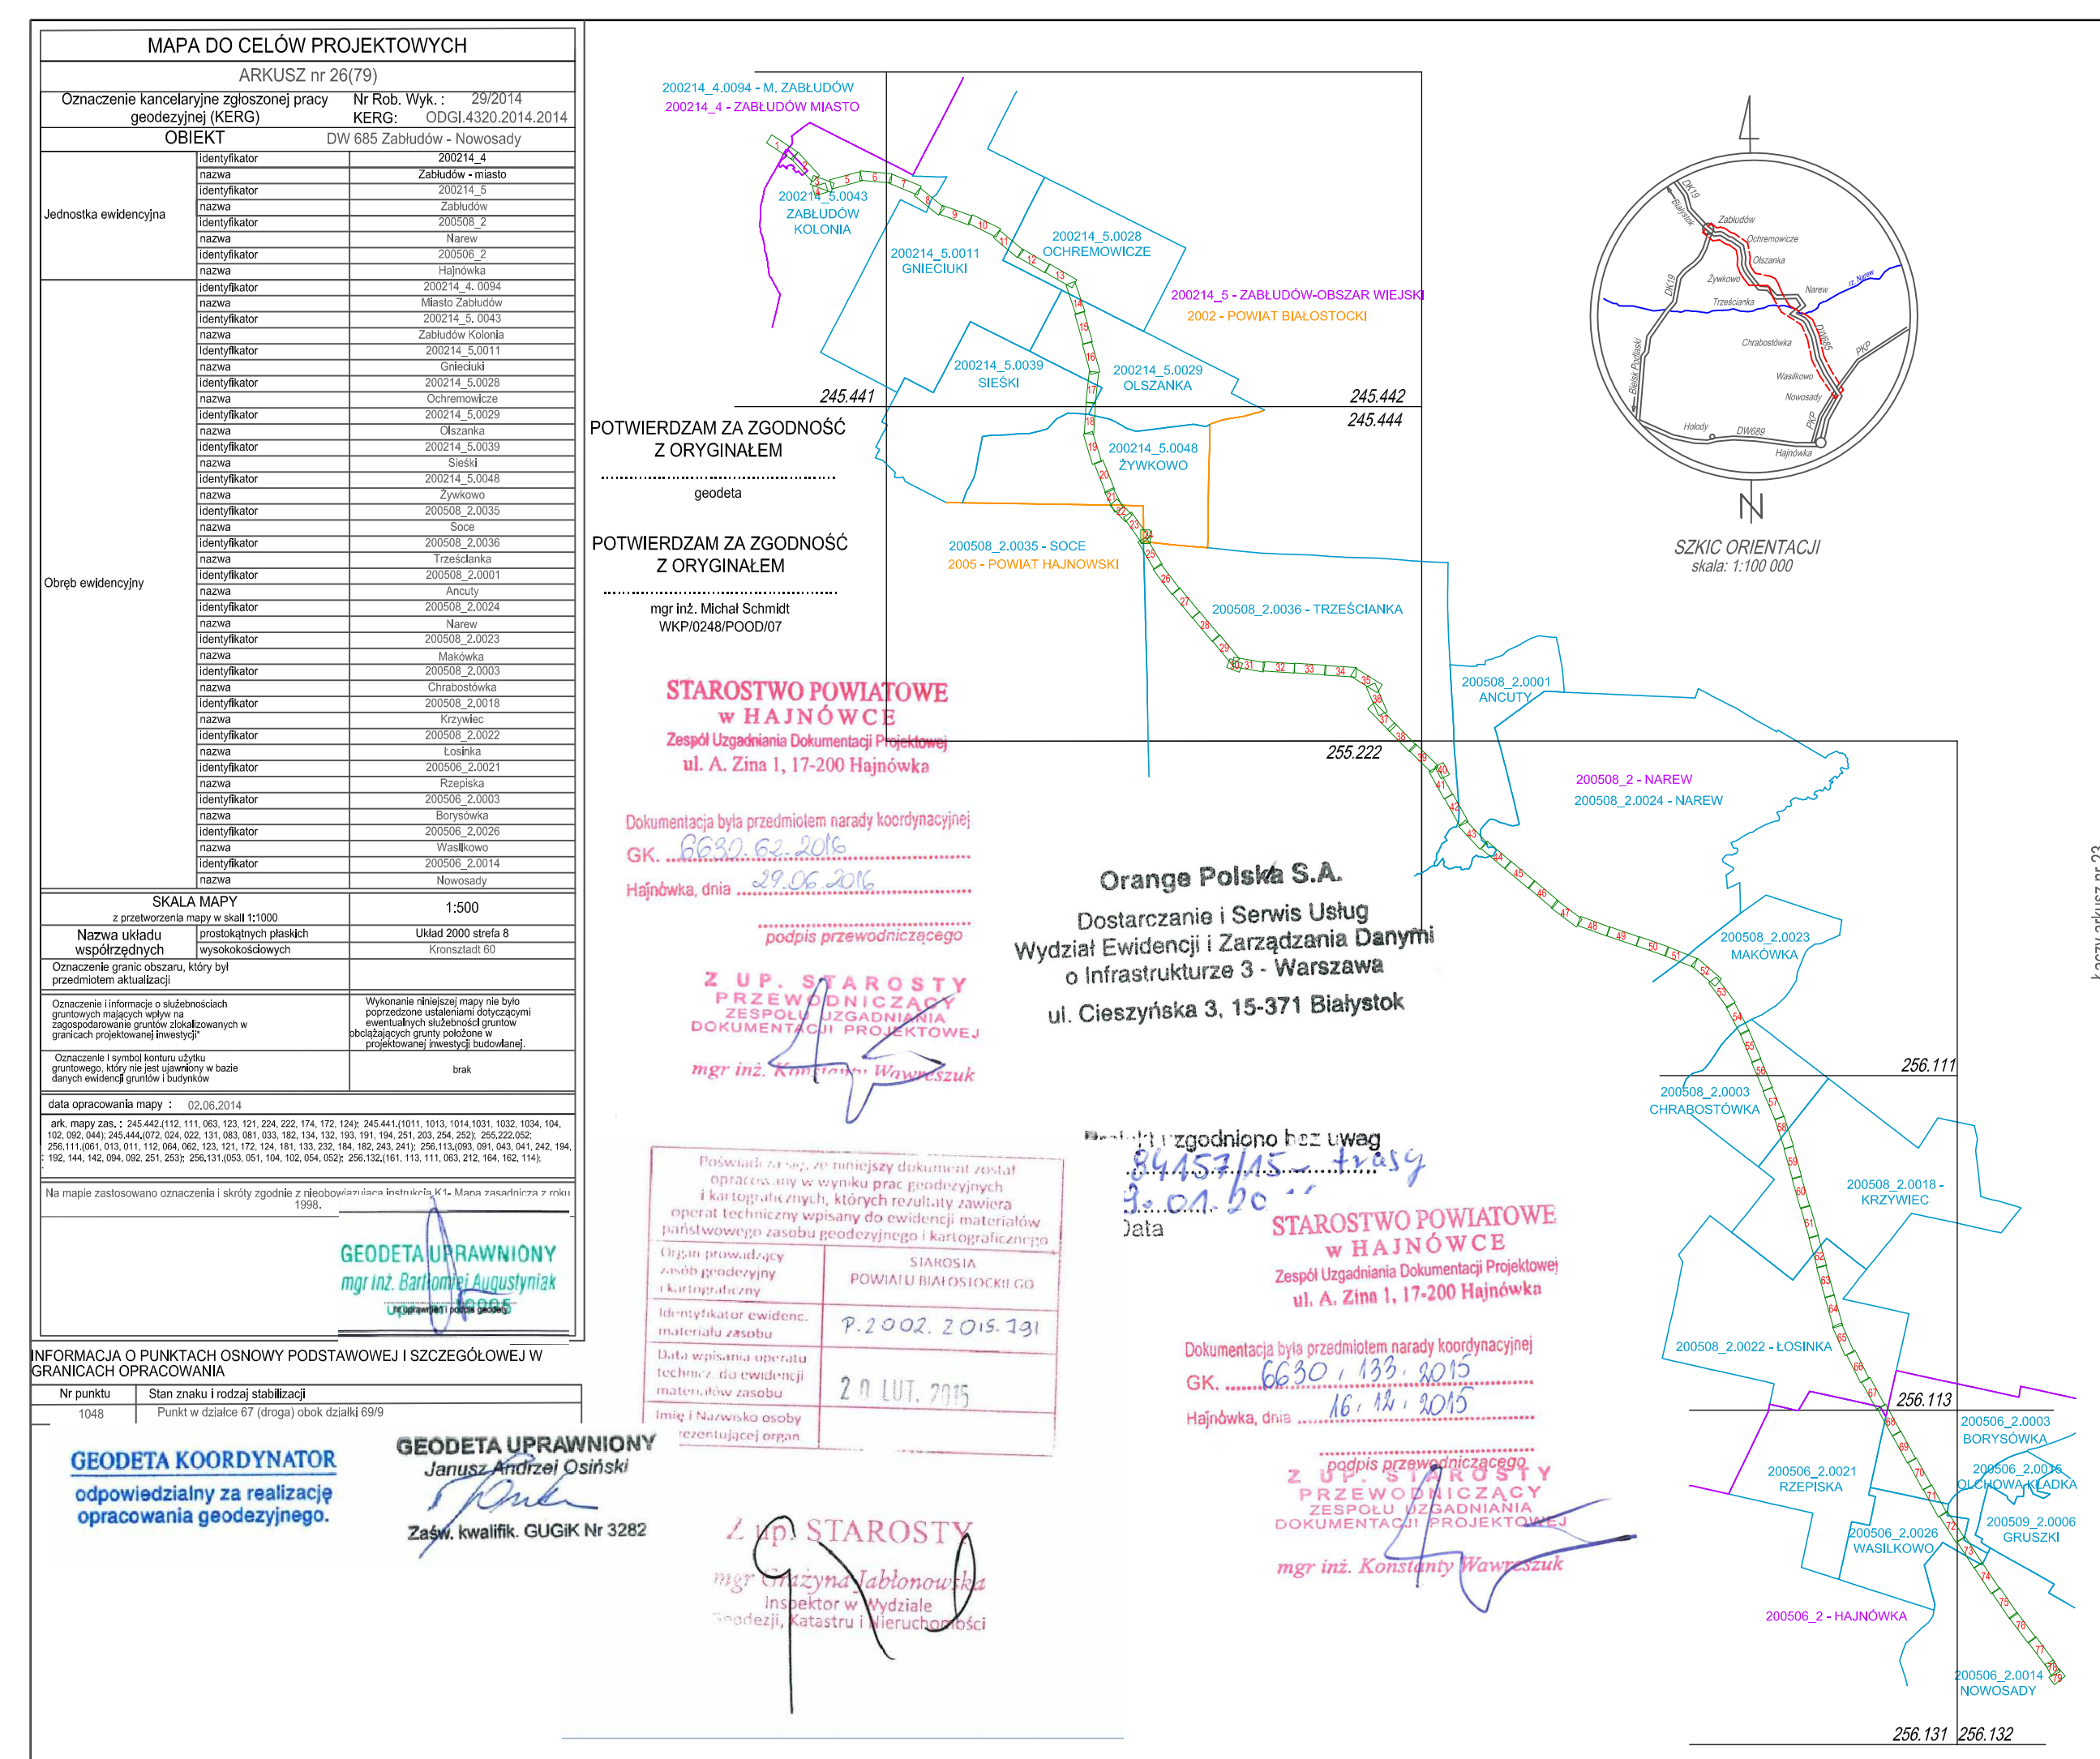 MAPA DO CELÓW PROJEKTOWYCH
ARKUSZ nr 26(79)
Oznaczenie kancelaryjne zgłoszonej pracy geodezyjnej (KERG)
Nr Rob. Wyk. : 29/2014
KERG: ODGI.4320.2014.2014
OBIEKT DW 685 Zabłudów - Nowosady
Jednostka ewidencyjna
identyfikator 200214_4
nazwa Zabłudów - miasto
identyfikator 200214_5
nazwa Zabłudów
identyfikator 200508_2
nazwa Narew
identyfikator 200506_2
nazwa Hajnówka
Obręb ewidencyjny
identyfikator 200214_4. 0094
nazwa Miasto Zabłudów
identyfikator 200214_5. 0043
nazwa Zabłudów Kolonia
Identyfikator 200214_5.0011
nazwa Gnieciuki
identyfikator 200214_5.0028
nazwa Ochremowicze
identyfikator 200214_5.0029
nazwa Olszanka
identyfikator 200214_5.0039
nazwa Sieśki
identyfikator 200214_5.0048
nazwa Żywkowo
identyfikator 200508_2.0035
nazwa Soce
identyfikator 200508_2.0036
nazwa Trześcianka
identyfikator 200508_2.0001
nazwa Ancuty
identyfikator 200508_2.0024
nazwa Narew
identyfikator 200508_2.0023
nazwa Makówka
identyfikator 200508_2.0003
nazwa Chrabostówka
identyfikator 200508_2.0018
nazwa Krzywiec
identyfikator 200508_2.0022
nazwa Łosinka
identyfikator 200506_2.0021
nazwa Rzepiska
identyfikator 200506_2.0003
nazwa Borysówka
identyfikator 200506_2.0026
nazwa Wasilkowo
identyfikator 200506_2.0014
nazwa Nowosady
SKALA MAPY
z przetworzenia mapy w skali 1:1000
1:500
Nazwa układu współrzędnych
prostokątnych płaskich Układ 2000 strefa 8
wysokokościowych Kronsztadt 60
Oznaczenie granic obszaru, który był
przedmiotem aktualizacji
Oznaczenie i informacje o służebnościach
gruntowych mających wpływ na
zagospodarowanie gruntów zlokalizowanych w
granicach projektowanej inwestycji*
Wykonanie niniejszej mapy nie było
poprzedzone ustaleniami dotyczącymi
ewentualnych służebności gruntów
obciążających grunty położone w
projektowanej inwestycji budowlanej.
Oznaczenie i symbol konturu użytku
gruntowego, który nie jest ujawniony w bazie
danych ewidencji gruntów i budynków
brak
data opracowania mapy : 02.06.2014
ark. mapy zas. : 245.442.(112, 111, 063, 123, 121, 224, 222, 174, 172, 124); 245.441.(1011, 1013, 1014,1031, 1032, 1034, 104,
102, 092, 044); 245.444.(072, 024, 022, 131, 083, 081, 033, 182, 134, 132, 193, 191, 194, 251, 203, 254, 252); 255.222.052;
256.111.(061, 013, 011, 112, 064, 062, 123, 121, 172, 124, 181, 133, 232, 184, 182, 243, 241); 256.113.(093, 091, 043, 041, 242, 194,
192, 144, 142, 094, 092, 251, 253); 256.131.(053, 051, 104, 102, 054, 052); 256.132.(161, 113, 111, 063, 212, 164, 162, 114);
Na mapie zastosowano oznaczenia i skróty zgodnie z nieobowiązującą instrukcją K1- Mapa zasadnicza z roku
1998.
GEODETA UPRAWNIONY
mgr inż. Bartłomiej Augustyniak
nr uprawnień i podpis geodety
INFORMACJA O PUNKTACH OSNOWY PODSTAWOWEJ I SZCZEGÓŁOWEJ W
GRANICACH OPRACOWANIA
Nr punktu Stan znaku i rodzaj stabilizacji
1048 Punkt w działce 67 (droga) obok działki 69/9
GEODETA KOORDYNATOR
odpowiedzialny za realizację
opracowania geodezyjnego.
GEODETA UPRAWNIONY
Janusz Andrzej Osiński
Zaśw. kwalifik. GUGiK Nr 3282
POTWIERDZAM ZA ZGODNOŚĆ
Z ORYGINAŁEM
geodeta
POTWIERDZAM ZA ZGODNOŚĆ
Z ORYGINAŁEM
mgr inż. Michał Schmidt
WKP/0248/POOD/07
STAROSTWO POWIATOWE
w HAJNÓWCE
Zespół Uzgadniania Dokumentacji Projektowej
ul. A. Zina 1, 17-200 Hajnówka
Dokumentacja była przedmiotem narady koordynacyjnej
GK. 6630.62.2016
Hajnówka, dnia 29.06.2016
podpis przewodniczącego
Z UP. STAROSTY
PRZEWODNICZĄCY
ZESPOŁU UZGADNIANIA
DOKUMENTACJI PROJEKTOWEJ
mgr inż. Konstanty Wawreszuk
Orange Polska S.A.
Dostarczanie i Serwis Usług
Wydział Ewidencji i Zarządzania Danymi
o Infrastrukturze 3 - Warszawa
ul. Cieszyńska 3, 15-371 Białystok
uzgodniono bez uwag
84157/15 - trasy
Data
Poświadcza się, że niniejszy dokument został
opracowany w wyniku prac geodezyjnych
i kartograficznych, których rezultaty zawiera
operat techniczny wpisany do ewidencji materiałów
państwowego zasobu geodezyjnego i kartograficznego
Organ prowadzący
zasób geodezyjny
i kartograficzny
STAROSTA
POWIATU BIAŁOSTOCKIEGO
Identyfikator ewidenc.
materiału zasobu
P.2002.2015.791
Data wpisania operatu
technicz. do ewidencji
materiałów zasobu
20 LUT. 2015
Imię i Nazwisko osoby
rezentującej organ
Z up. STAROSTY
mgr Grażyna Jabłonowska
Inspektor w Wydziale
Geodezji, Katastru i Nieruchomości
STAROSTWO POWIATOWE
w HAJNÓWCE
Zespół Uzgadniania Dokumentacji Projektowej
ul. A. Zina 1, 17-200 Hajnówka
Dokumentacja była przedmiotem narady koordynacyjnej
GK. 6630.133.2015
Hajnówka, dnia 16.12.2015
podpis przewodniczącego
Z UP. STAROSTY
PRZEWODNICZĄCY
ZESPOŁU UZGADNIANIA
DOKUMENTACJI PROJEKTOWEJ
mgr inż. Konstanty Wawreszuk
200214_4.0094 - M. ZABŁUDÓW
200214_4 - ZABŁUDÓW MIASTO
200214_5.0043
ZABŁUDÓW
KOLONIA
200214_5.0011
GNIECIUKI
200214_5.0028
OCHREMOWICZE
200214_5 - ZABŁUDÓW-OBSZAR WIEJSKI
2002 - POWIAT BIAŁOSTOCKI
200214_5.0039
SIEŚKI
200214_5.0029
OLSZANKA
245.441
245.442
245.444
200214_5.0048
ŻYWKOWO
200508_2.0035 - SOCE
2005 - POWIAT HAJNOWSKI
200508_2.0036 - TRZEŚCIANKA
200508_2.0001
ANCUTY
255.222
200508_2 - NAREW
200508_2.0024 - NAREW
200508_2.0023
MAKÓWKA
256.111
200508_2.0003
CHRABOSTÓWKA
200508_2.0018 -
KRZYWIEC
200508_2.0022 - ŁOSINKA
256.113
200506_2.0003
BORYSÓWKA
200506_2.0021
RZEPISKA
200506_2.0015
OLCHOWA KŁADKA
200506_2.0026
WASILKOWO
200509_2.0006
GRUSZKI
200506_2 - HAJNÓWKA
200506_2.0014
NOWOSADY
256.131 256.132
DK19
Białystok
Zabłudów
Ochremowicze
Olszanka
Żywkowo
Narew
rz. Narew
Trześcianka
DK19
DW685
Chrabostówka
PKP
Bielsk Podlaski
Wasilkowo
Nowosady
Hołody
DW689
PKP
Hajnówka
N
SZKIC ORIENTACJI
skala: 1:100 000
1 2 3 4 5 6 7 8 9 10 11 12 13 14 15 16 17 18 19 20 21 22 23 24 25 26 27 28 29 30 31 32 33 34 35 36 37 38 39 40 41 42 43 44 45 46 47 48 49 50 51 52 53 54 55 56 57 58 59 60 61 62 63 64 65 66 67 68 69 70 71 72 73 74 75 76 77 78 79
arkusz nr 23